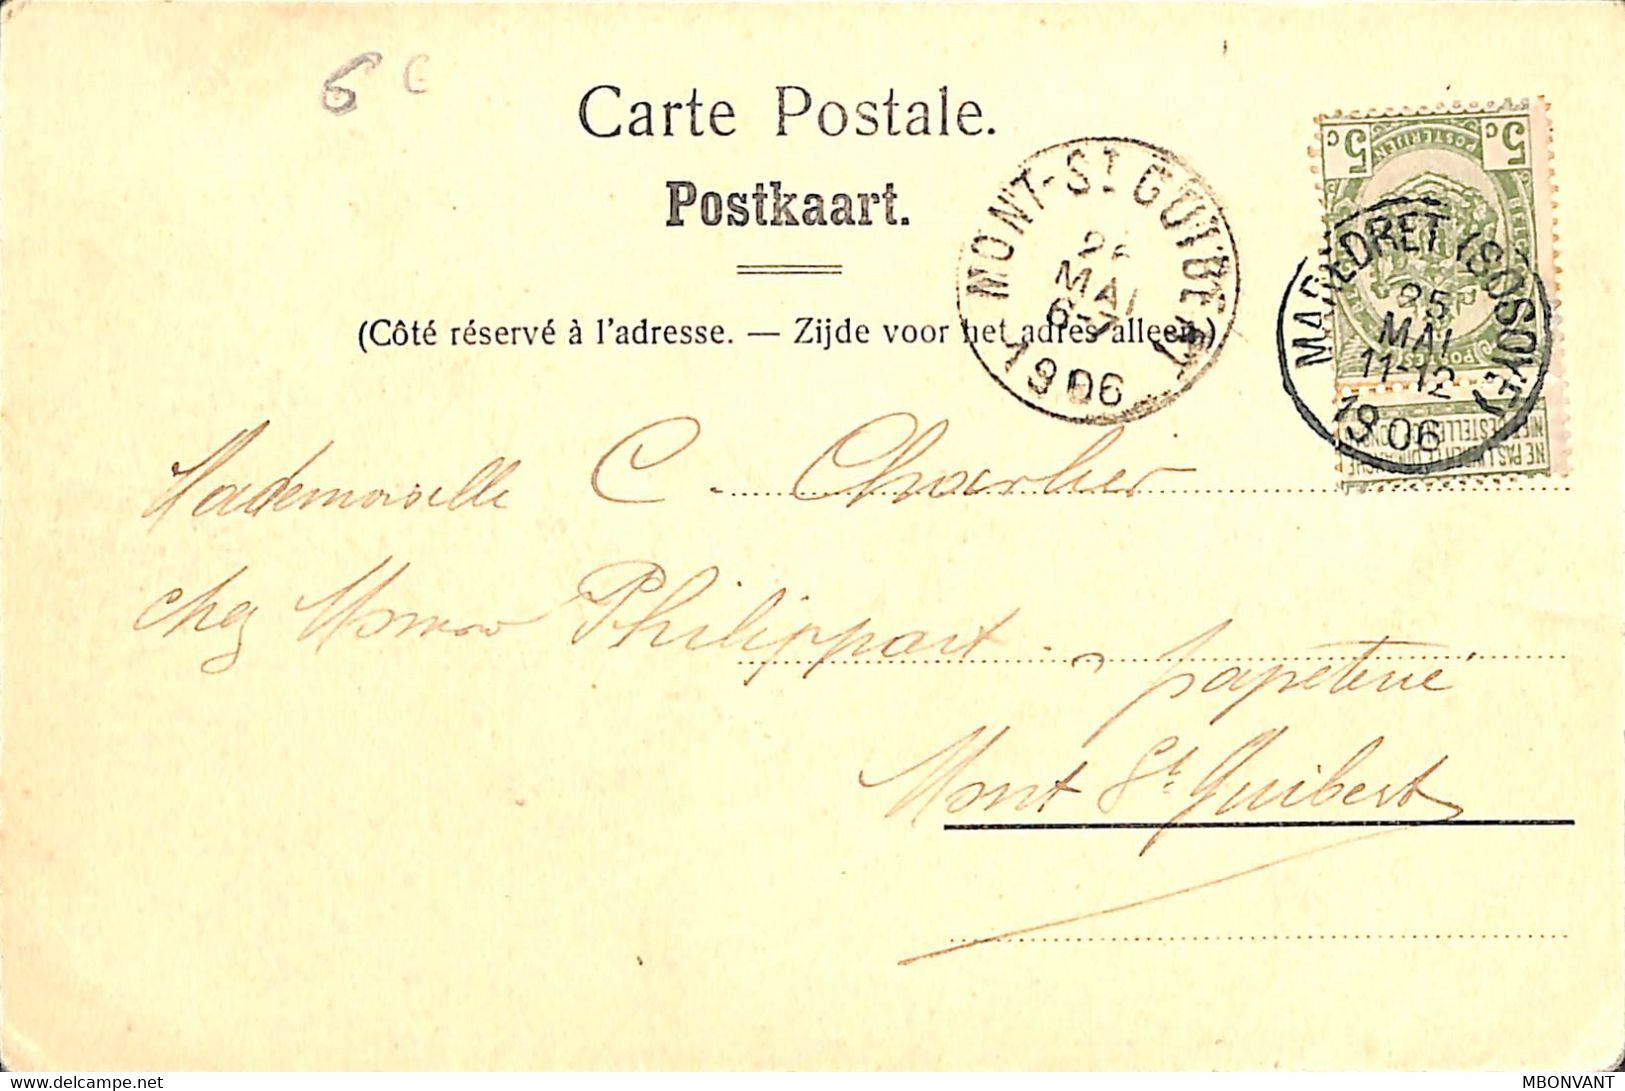 6 c
Carte Postale.
Postkaart.
(Côté réservé à l'adresse. — Zijde voor het adres alleen.)
MONT-ST GUIBERT
MAI
6-7
1906
5 c
5 c
POSTERIJEN
POSTES
MAREDRET (SOSOYE)
25
MAI
11-12
1906
NE PAS LIVRER LE DIMANCHE
NIET BESTELLEN OP ZONDAG
Mademoiselle C. Charlier
chez Philippart. papeterie
Mont St. Guibert
MBONVANT